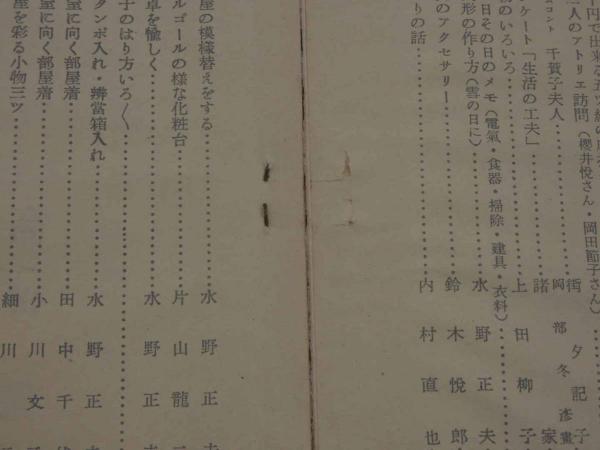 円で出来る五ツ組の
二人のアトリエ訪問（櫻井悅さん・岡田節子さん）
コント 千賀子夫人……岡部冬彦畫
ンケート「生活の工夫」……諸家
物のいろいろ……上田柳子
日その日のメモ（電氣・食器・掃除・建具・衣料）
形の作り方（雲の日に）……水野正夫
のアクセサリー……鈴木悅郎
りの話……内村直也
屋の模様替えをする……水野正夫
ルゴールの様な化粧台……片山龍二
卓を愉しく……水野正夫
子のはり方いろ〳〵
タンポ入れ・辨當箱入れ……水野正夫
室に向く部屋着……田中千代
室に向く部屋着……小川文子
屋を彩る小物三ツ……細川